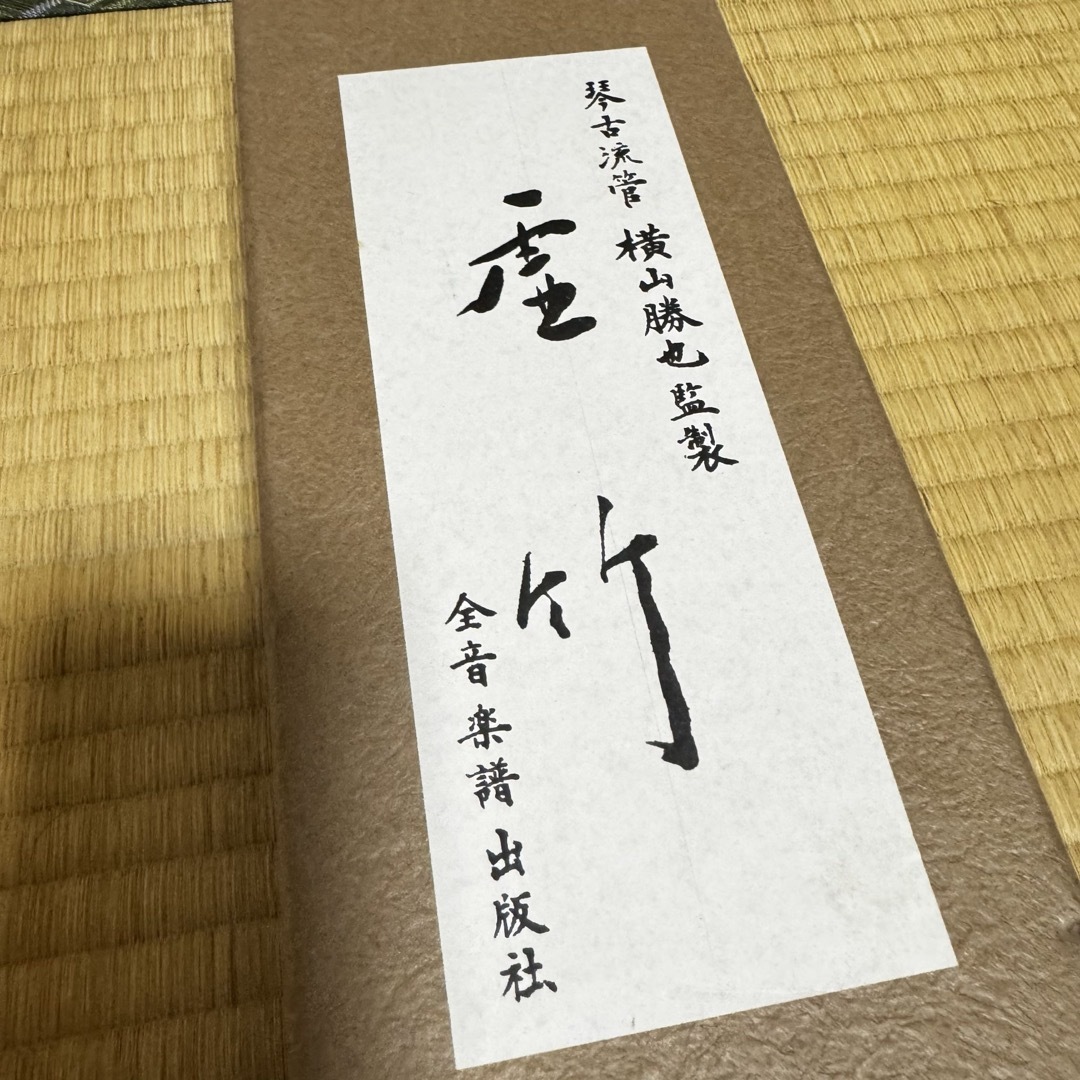 琴古流管 横山勝也監製
虚竹
全音楽譜出版社